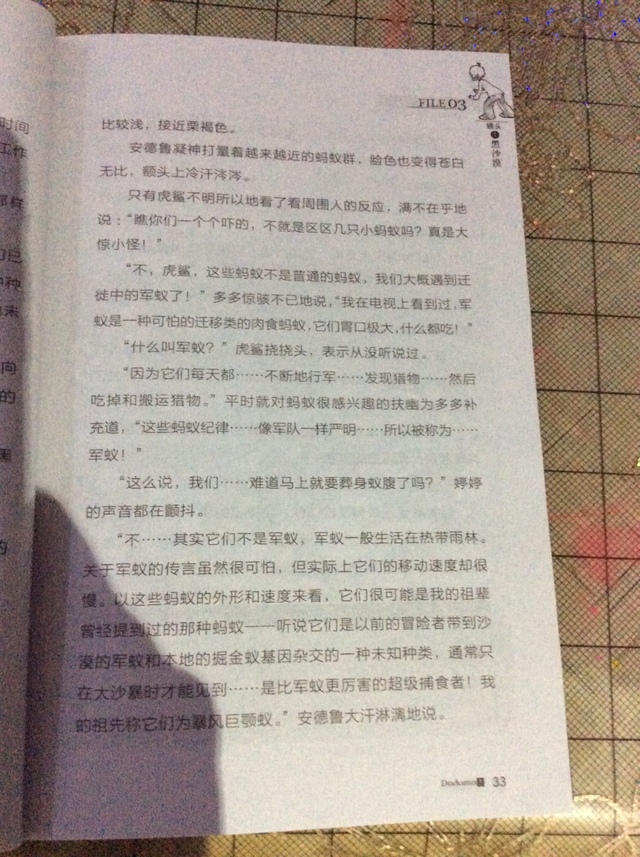 时间
工作
那样
们已
种种
向
的
的
FILE 03
镜头
黑沙漠
比较浅，接近栗褐色。
安德鲁凝神打量着越来越近的蚂蚁群，脸色也变得苍白
无比，额头上冷汗涔涔。
只有虎鲨不明所以地看了看周围人的反应，满不在乎地
说：“瞧你们一个个吓的，不就是区区几只小蚂蚁吗？真是大
惊小怪！”
“不，虎鲨，这些蚂蚁不是普通的蚂蚁，我们大概遇到迁
徙中的军蚁了！”多多惊骇不已地说，“我在电视上看到过，军
蚁是一种可怕的迁移类的肉食蚂蚁，它们胃口极大，什么都吃！”
“什么叫军蚁？”虎鲨挠挠头，表示从没听说过。
“因为它们每天都……不断地行军……发现猎物……然后
吃掉和搬运猎物。”平时就对蚂蚁很感兴趣的扶幽为多多补
充道，“这些蚂蚁纪律……像军队一样严明……所以被称为……
军蚁！”
“这么说，我们……难道马上就要葬身蚁腹了吗？”婷婷
的声音都在颤抖。
“不……其实它们不是军蚁，军蚁一般生活在热带雨林。
关于军蚁的传言虽然很可怕，但实际上它们的移动速度却很
慢。以这些蚂蚁的外形和速度来看，它们很可能是我的祖辈
曾经提到过的那种蚂蚁——听说它们是以前的冒险者带到沙
漠的军蚁和本地的掘金蚁基因杂交的一种未知种类，通常只
在大沙暴时才能见到……是比军蚁更厉害的超级捕食者！我
的祖先称它们为暴风巨颚蚁。”安德鲁大汗淋漓地说。
33